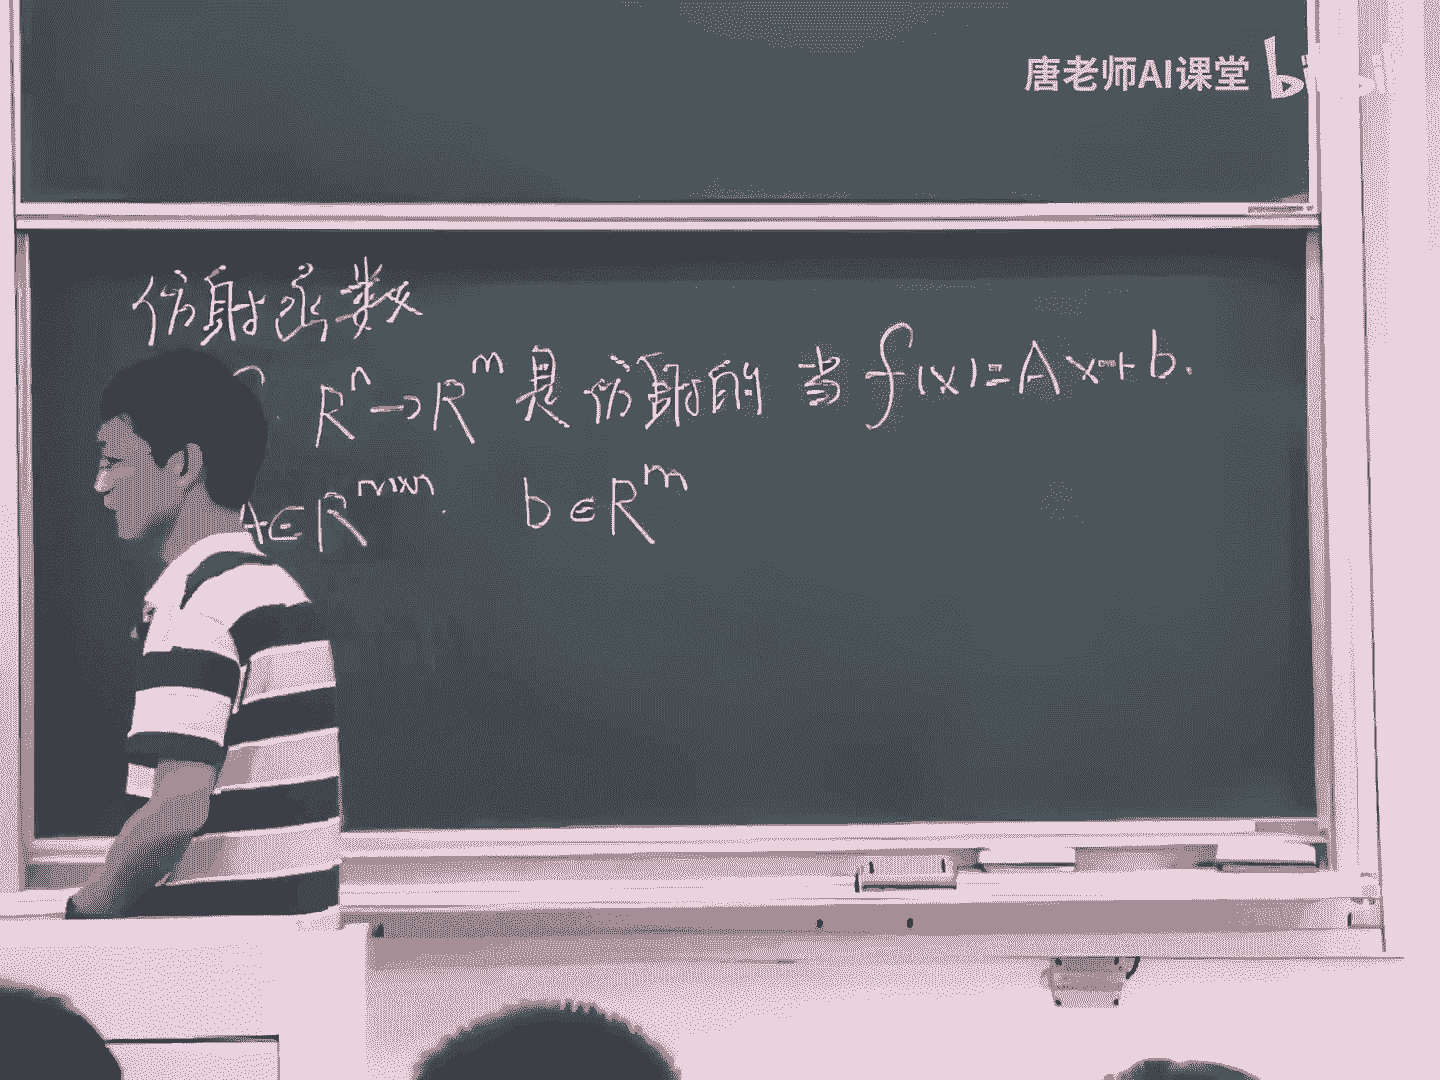 唐老师AI课堂 bilibili
仿射函数
R^n→R^m 是仿射的 当 f(x)=Ax+b.
A∈R^{m×n}. b∈R^m